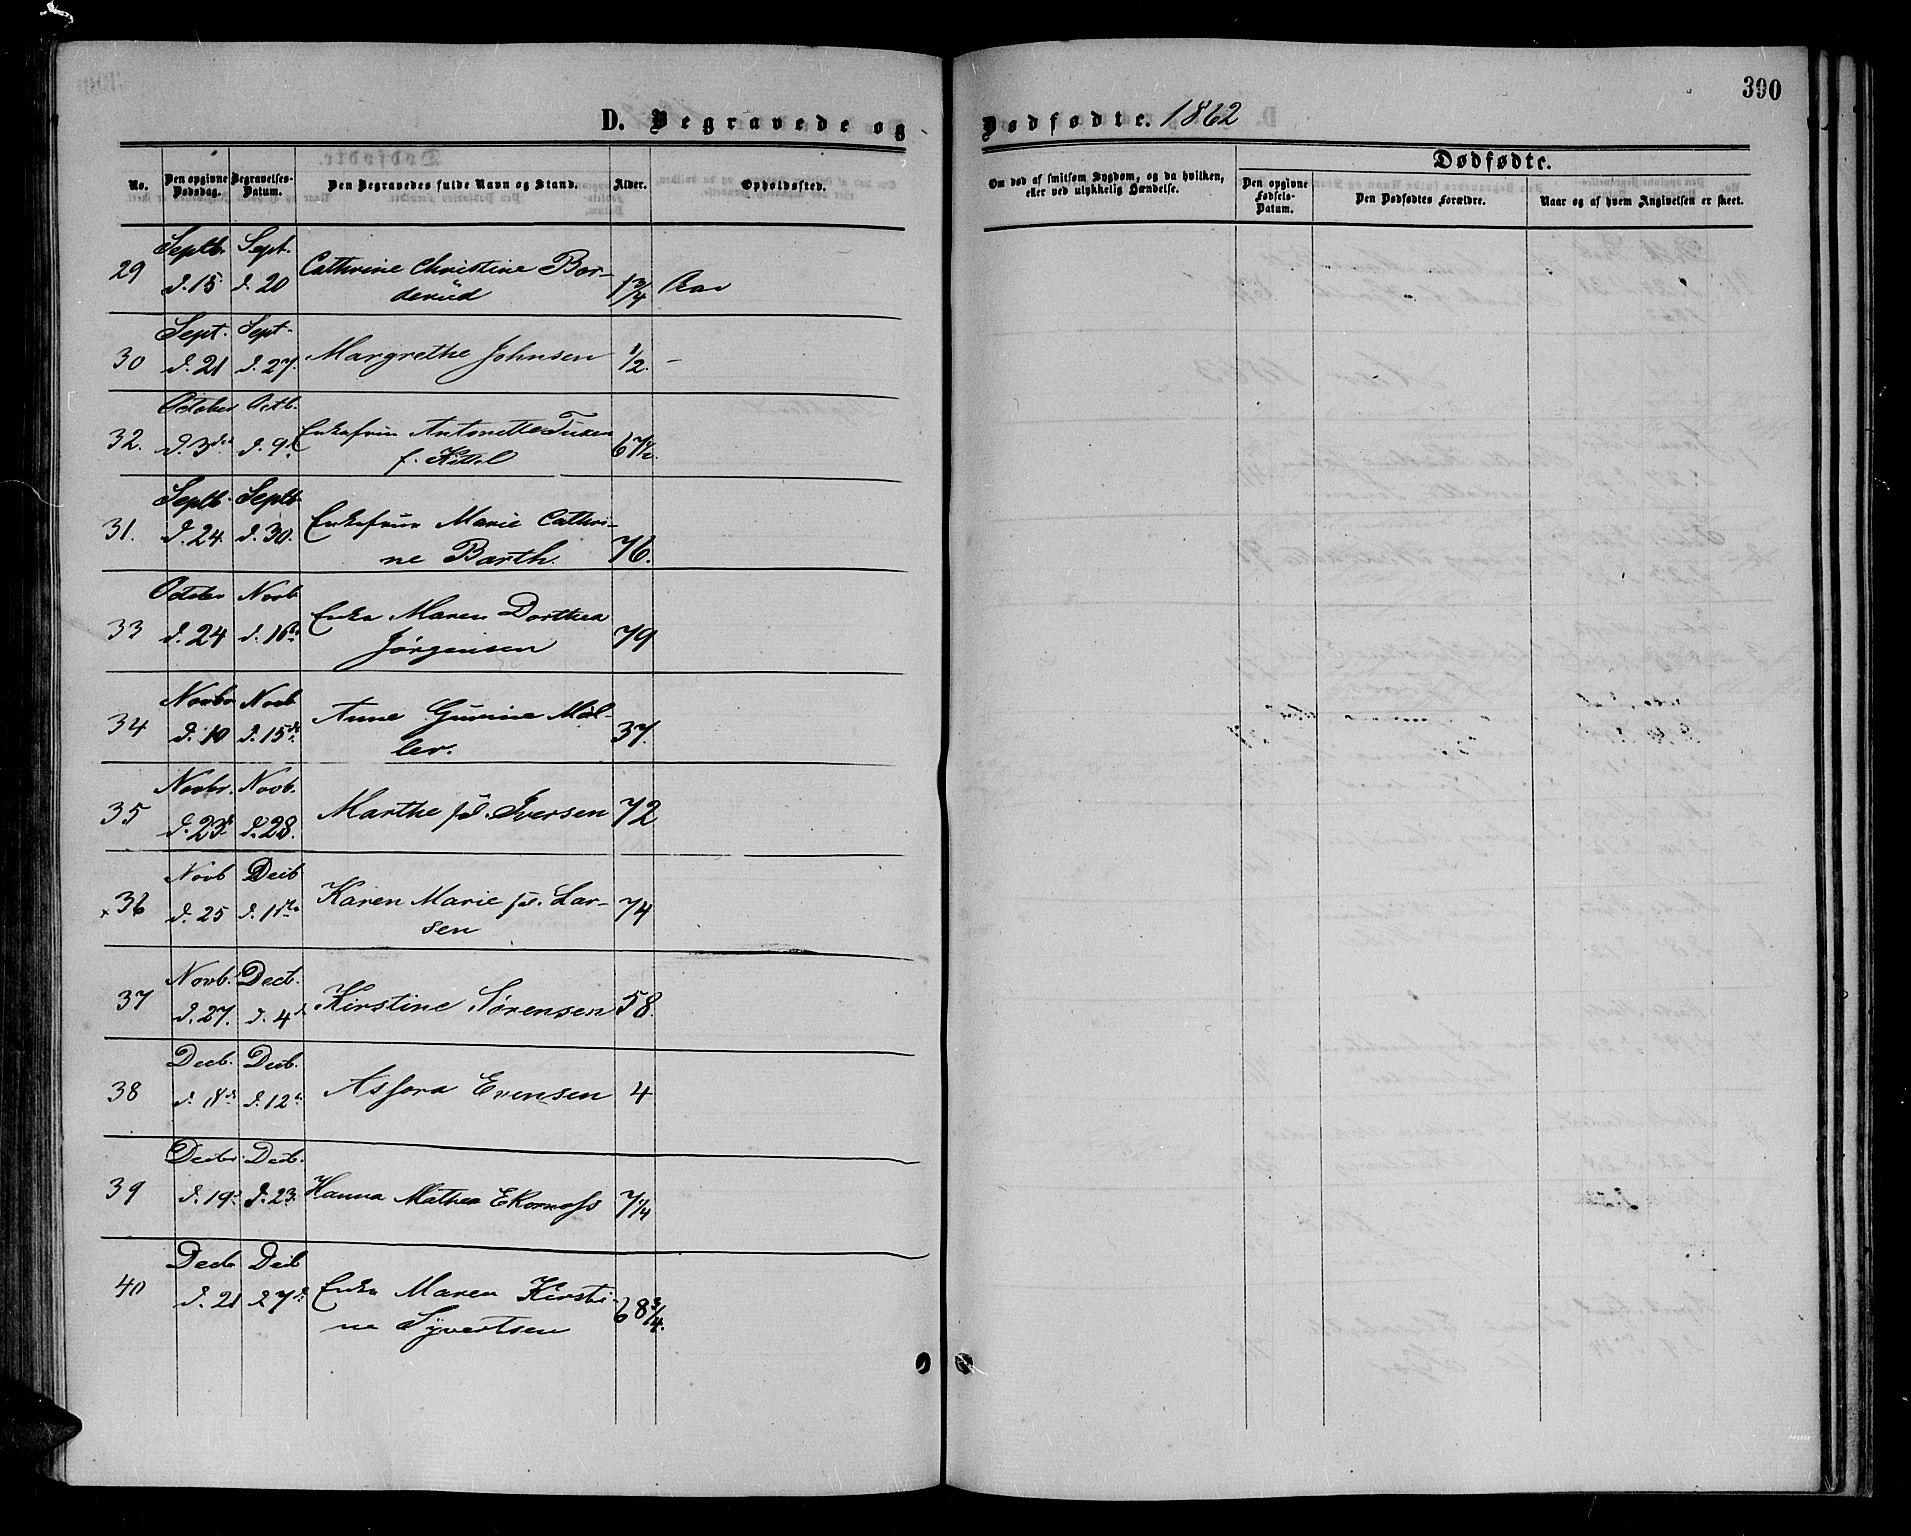 390
D. Begravede og Dødfødte. 1862
No. Den opgivne Dødsdag. Begravelses-Datum. Den Begravedes fulde Navn og Stand. Alder. Opholdssted.
Om død af smitsom Sygdom, og da hvilken, eller ved ulykkelig Hændelse.
Dødfødte.
Den opgivne Fødsels-Datum. Den Dødfødtes Forældre. Naar og af hvem Angivelsen er skeet.
Septb. Sept.
29 d. 15 d. 20 Cathrine Christine Bor-
derud 1 3/4
Sept. Sept.
30 d. 21 d. 27. Margrethe Johnsen 1/2. –
October Octb.
32. d. 3die d. 9d Enkefrue Antonette Tuxen
f. Kittel 67 1/2.
Septb. Septb.
31. d. 24. d. 30. Enkefrue Marie Cathri-
ne Barth. 76.
October Novb.
33 d. 24 d. 16de Enke Maren Dorthea
Jørgensen 79
Novbr Novb
34 d. 10 d. 15de Anne Gurine Møl-
ler. 37.
Novbr. Novb.
35 d. 23d d. 28. Marthe Iversen 72
Novb Decb
x 36 d. 25 d. 1ste Karen Marie Lar-
sen 74
Novb. Decb.
37 d. 27. d. 4d Kirstine Sørensen 58.
Decb. Decb.
38 d. d. 12 Evensen 4
Decbr. Decb.
39 d. 19d d. 23. Hanna Mathea Ekornass 7 1/4
Decb Decb
40 d. 21 27d Enke Maren Kirsti-
ne Syvertsen 68 3/4.